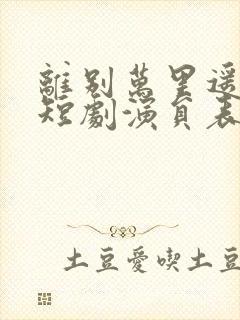 離別萬里遥
短劇演員表
土豆愛喫土豆